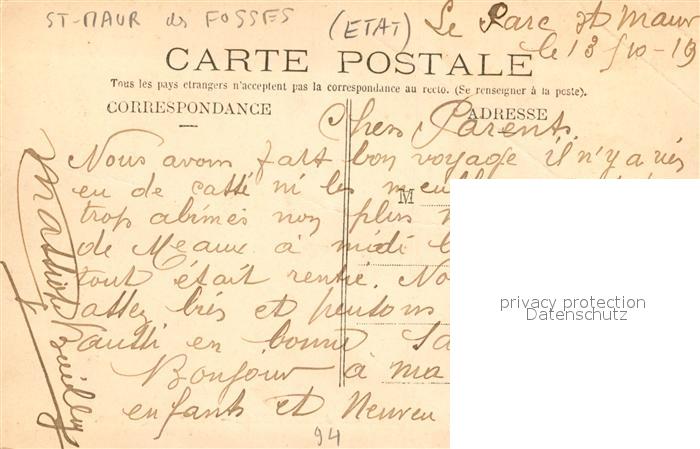 ST-MAUR des FOSSES (ETAT) Le Parc St Maur
le 13/10-19
CARTE POSTALE
Tous les pays étrangers n'acceptent pas la correspondance au recto. (Se renseigner à la poste).
CORRESPONDANCE ADRESSE
Chers Parents.
Nous avons fait bon voyage il n'y a rien
eu de cassé ni les meubl
trop abîmés non plus
M
de Meaux à midi
tout était rentré. No
assez bien et pensons
aussi en bonne Sa
Bonjour à ma
enfants et Neveu
94
privacy protection
Datenschutz